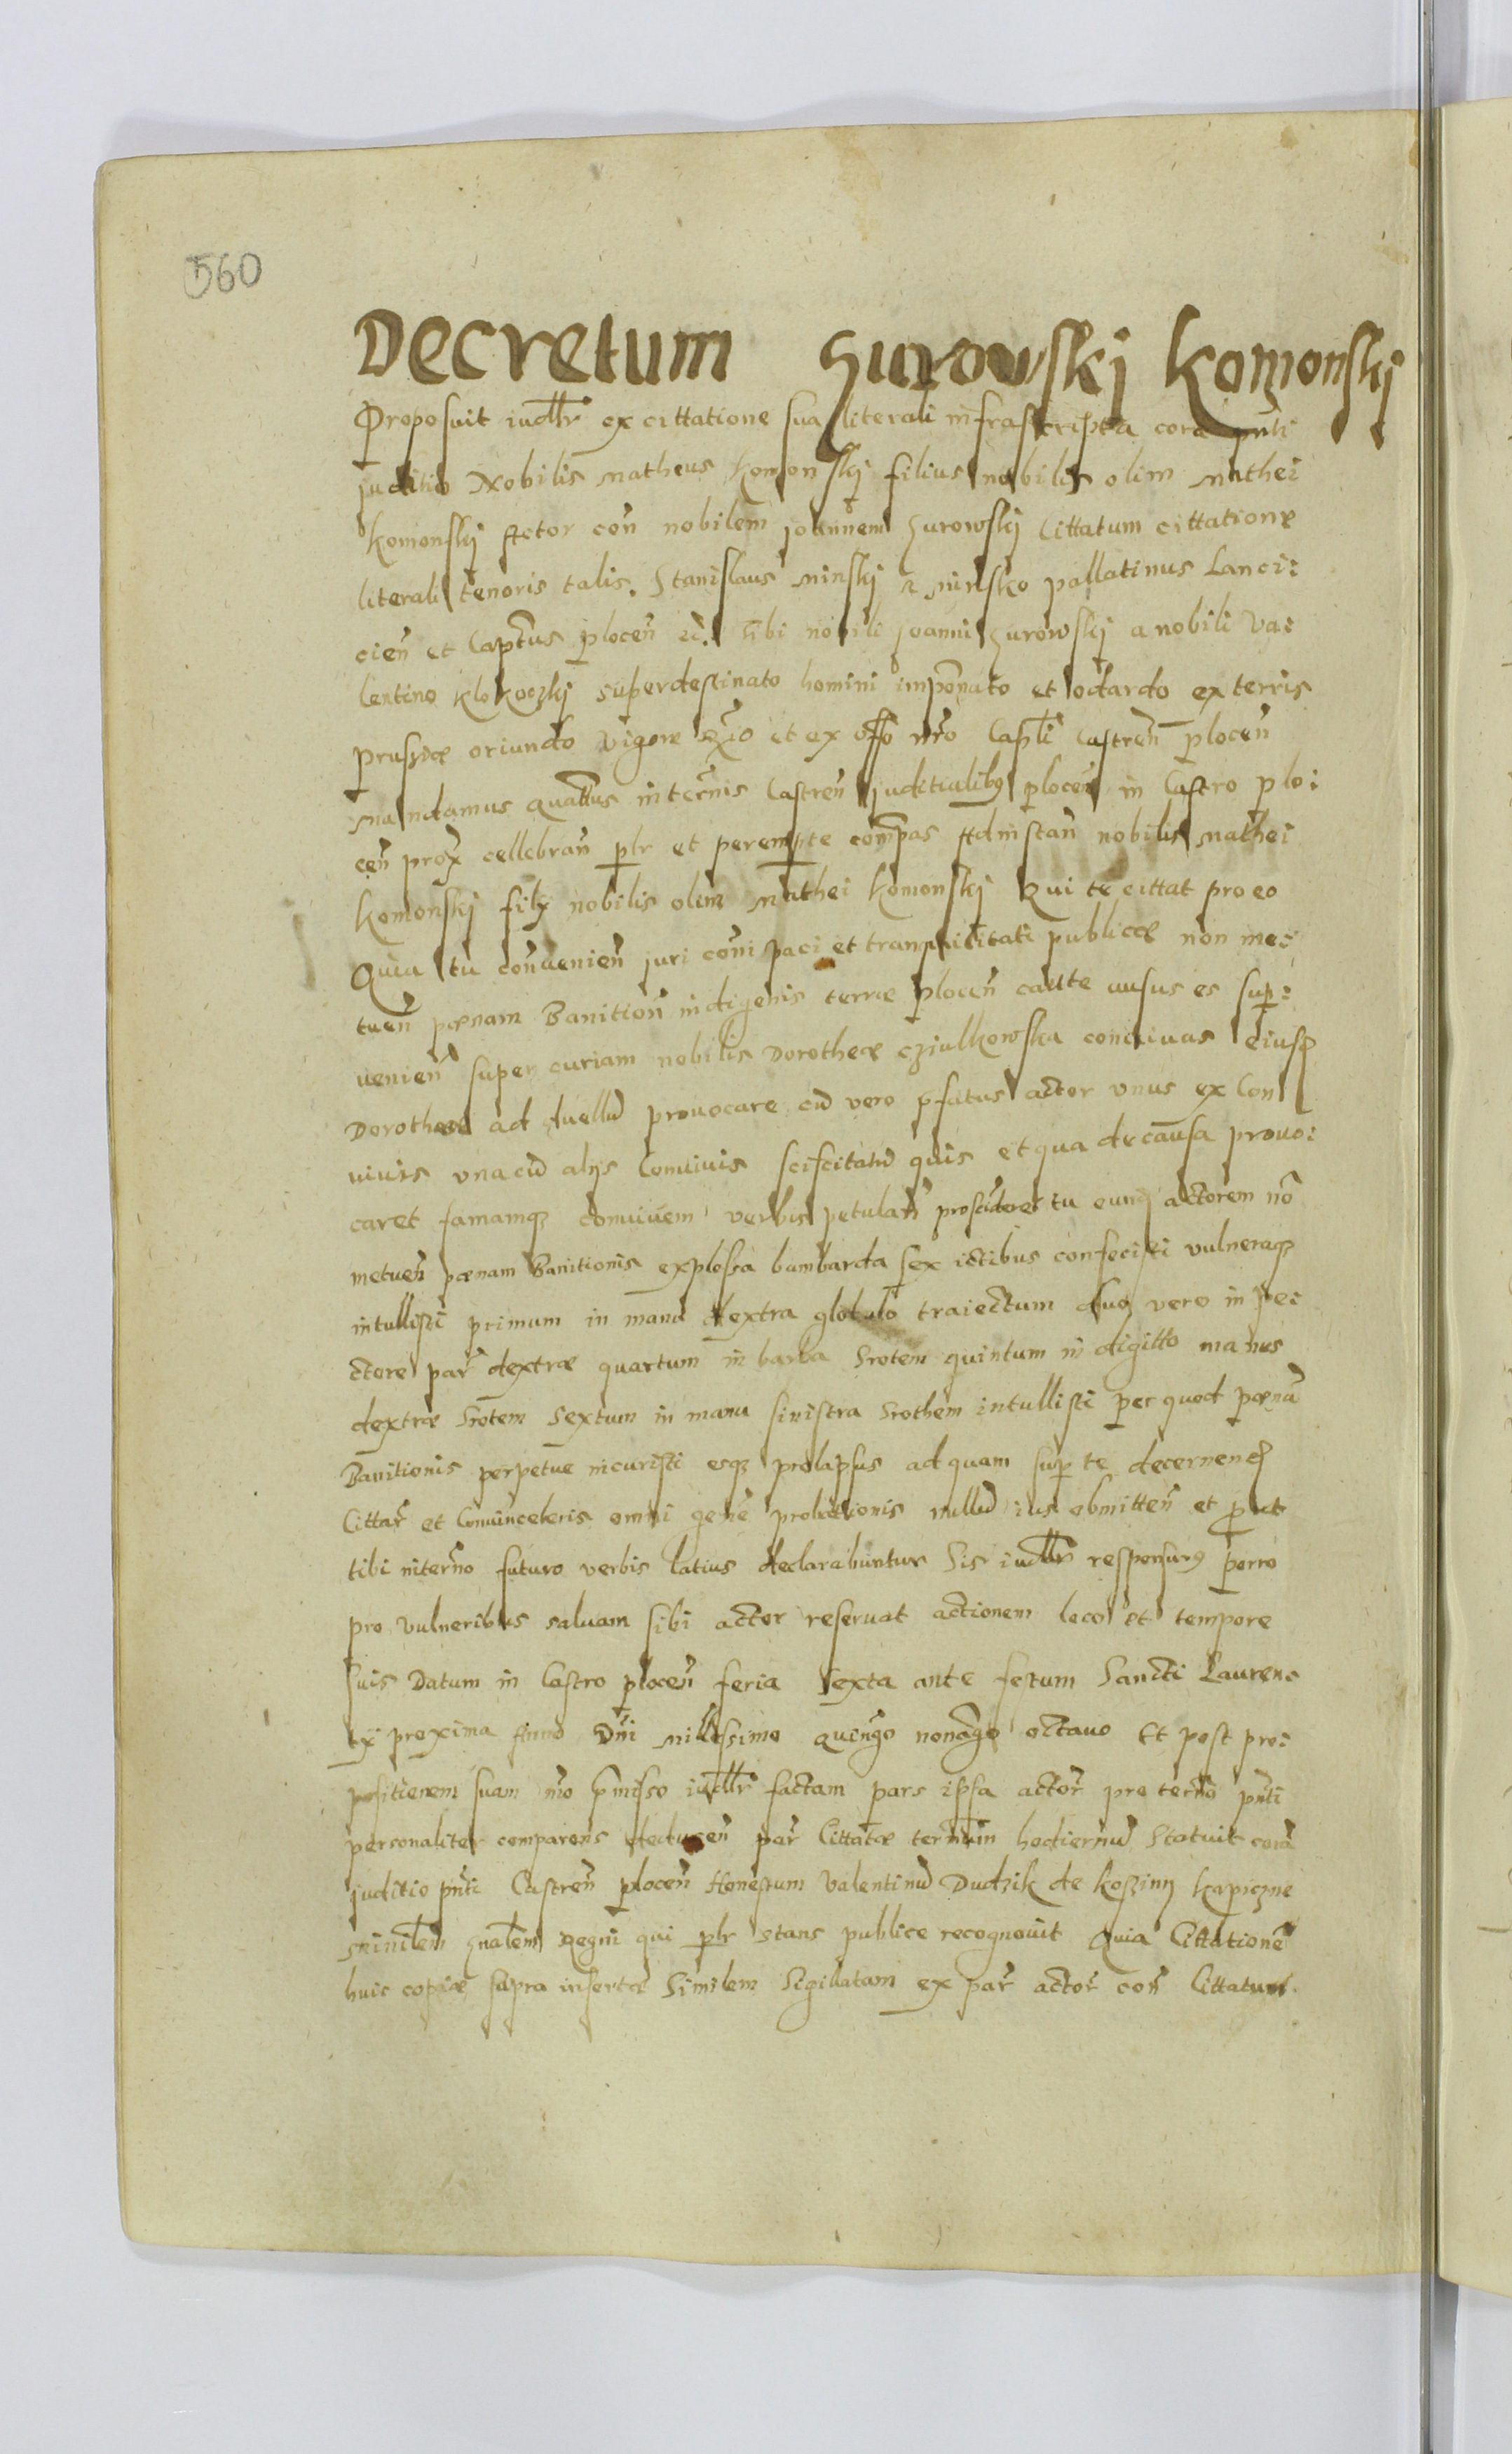 560
Decretum Zurowskj Komonskj
Proposuit iudllr ex cittatione sua literali infrascripta cora pnti
juditio Nobilis Matheus Komonskj filius nobilis olim Mathei
Komonskj Actor con nobilem joannem Zurowskj Cittatum cittatione
literali tenoris talis. Stanislaus Minskj a Minsko pallatinus Lanci:
cien et Captus plocen etc. tibi nobili joanni Zurowskj a nobili Va:
lentino Klokoczkj superdestinato homini imponato et odardo ex terris
prussiæ oriundo vigore et ex offo nro Capli Castren plocen
Mandamus quattus in termis Castren juditialibq plocen in Castro plo:
cen prox cellebran plr et perempte compas Ad instan nobilis Mathei
Komonskj filij nobilis olim Mathei Komonskj Qui te cittat pro eo
Quia tu convenien juri coni paci et tranquilitati publicæ non me:
tuen pænam Banition indigenis terræ plocen caute ausus es sup:
venien super curiam nobilis Dorotheæ Cziulkowska convivas eiusd
Dorotheæ ad duellu provocare cu vero pfatus actor vnus ex Con
vivis vna cu alijs Convivis sciscitatu quis et qua de causa provo:
caret famamq convivem verbis petulan proscideres tu eund actorem no
metuen pænam Banitionis explossa bumbarda sex ictibus confecisti vulneraq
intullisti primum in manu dextra globulo traiectum duo vero in pe:
ctore par dextræ quartum in barba Srotem quintum in digitto manus
dextræ Srotem Sextum in manu sinistra Srothem intullisti per quod pæna
Banitionis perpetue incuristi esq prolapsus ad quam sup te decernend
Cittar et Convinceberis omni gene probationis nullu ius obmitten et prut
tibi in termo futuro verbis latius declarabuntur Sis iudllr responsurq porro
pro vulneribus saluam sibi actor reservat actionem loco et tempore
suis Datum in Castro plocen feria Sexta ante festum Sancti Lauren:
tij proxima Anno Dni Millesimo quingo nonago octavo Et post pro:
positionem suam mo pmisso iudllr factam pars ipsa actor pro termo pnti
personaliter comparens deducen par Cittatæ terminum hodiernu Statuit cora
juditio pnti Castren plocen Honestum Valentinu Dudzik de Koszinij Kapiczne
Minilem gnalem Regni qui plr stans publice recognovit Quia Cittatione
huic copiæ supra insertæ Similem Sigillatam ex par actor con Cittatum